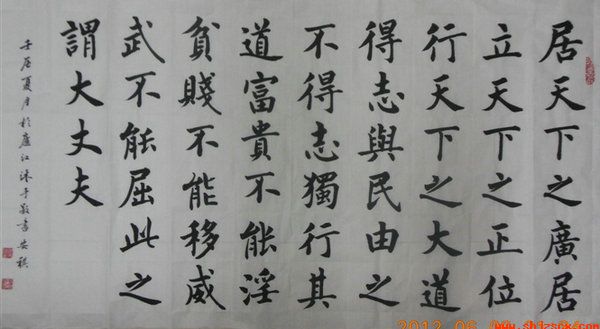 居天下之廣居
立天下之正位
行天下之大道
得志與民由之
不得志獨行其
道富貴不能淫
貧賤不能移威
武不能屈此之
謂大丈夫
壬辰夏月於廬江沐手敬書